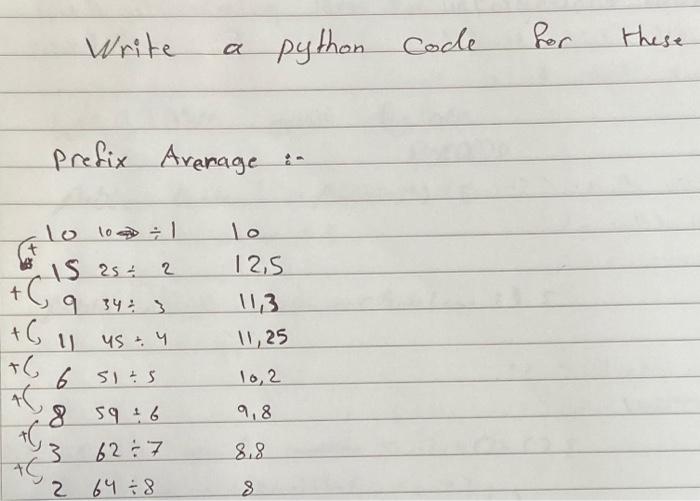 Write a python code for these
Prefix Average :-
10 10 ÷ 1 10
+ 15 25 ÷ 2 12,5
+ 9 34 ÷ 3 11,3
+ 11 45 ÷ 4 11,25
+ 6 51 ÷ 5 10,2
+ 8 59 ÷ 6 9,8
+ 3 62 ÷ 7 8,8
+ 2 64 ÷ 8 8